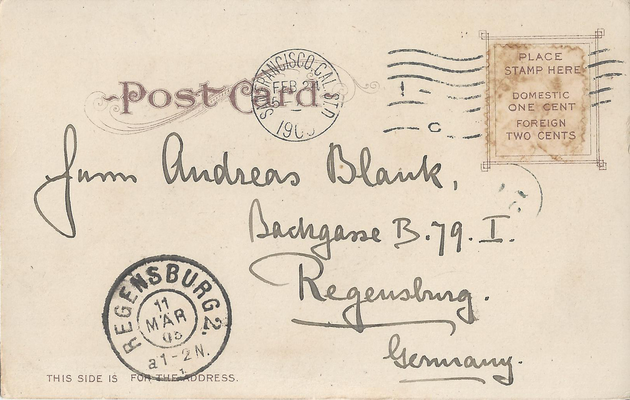 Post Card
SAN FRANCISCO, CAL. STA. D
FEB 24
PLACE
STAMP HERE
DOMESTIC
ONE CENT
FOREIGN
TWO CENTS
Andreas Blank,
Bachgasse B. 79. I.
Regensburg.
Germany.
REGENSBURG 2.
11
MAR
1-2 N.
THIS SIDE IS FOR THE ADDRESS.